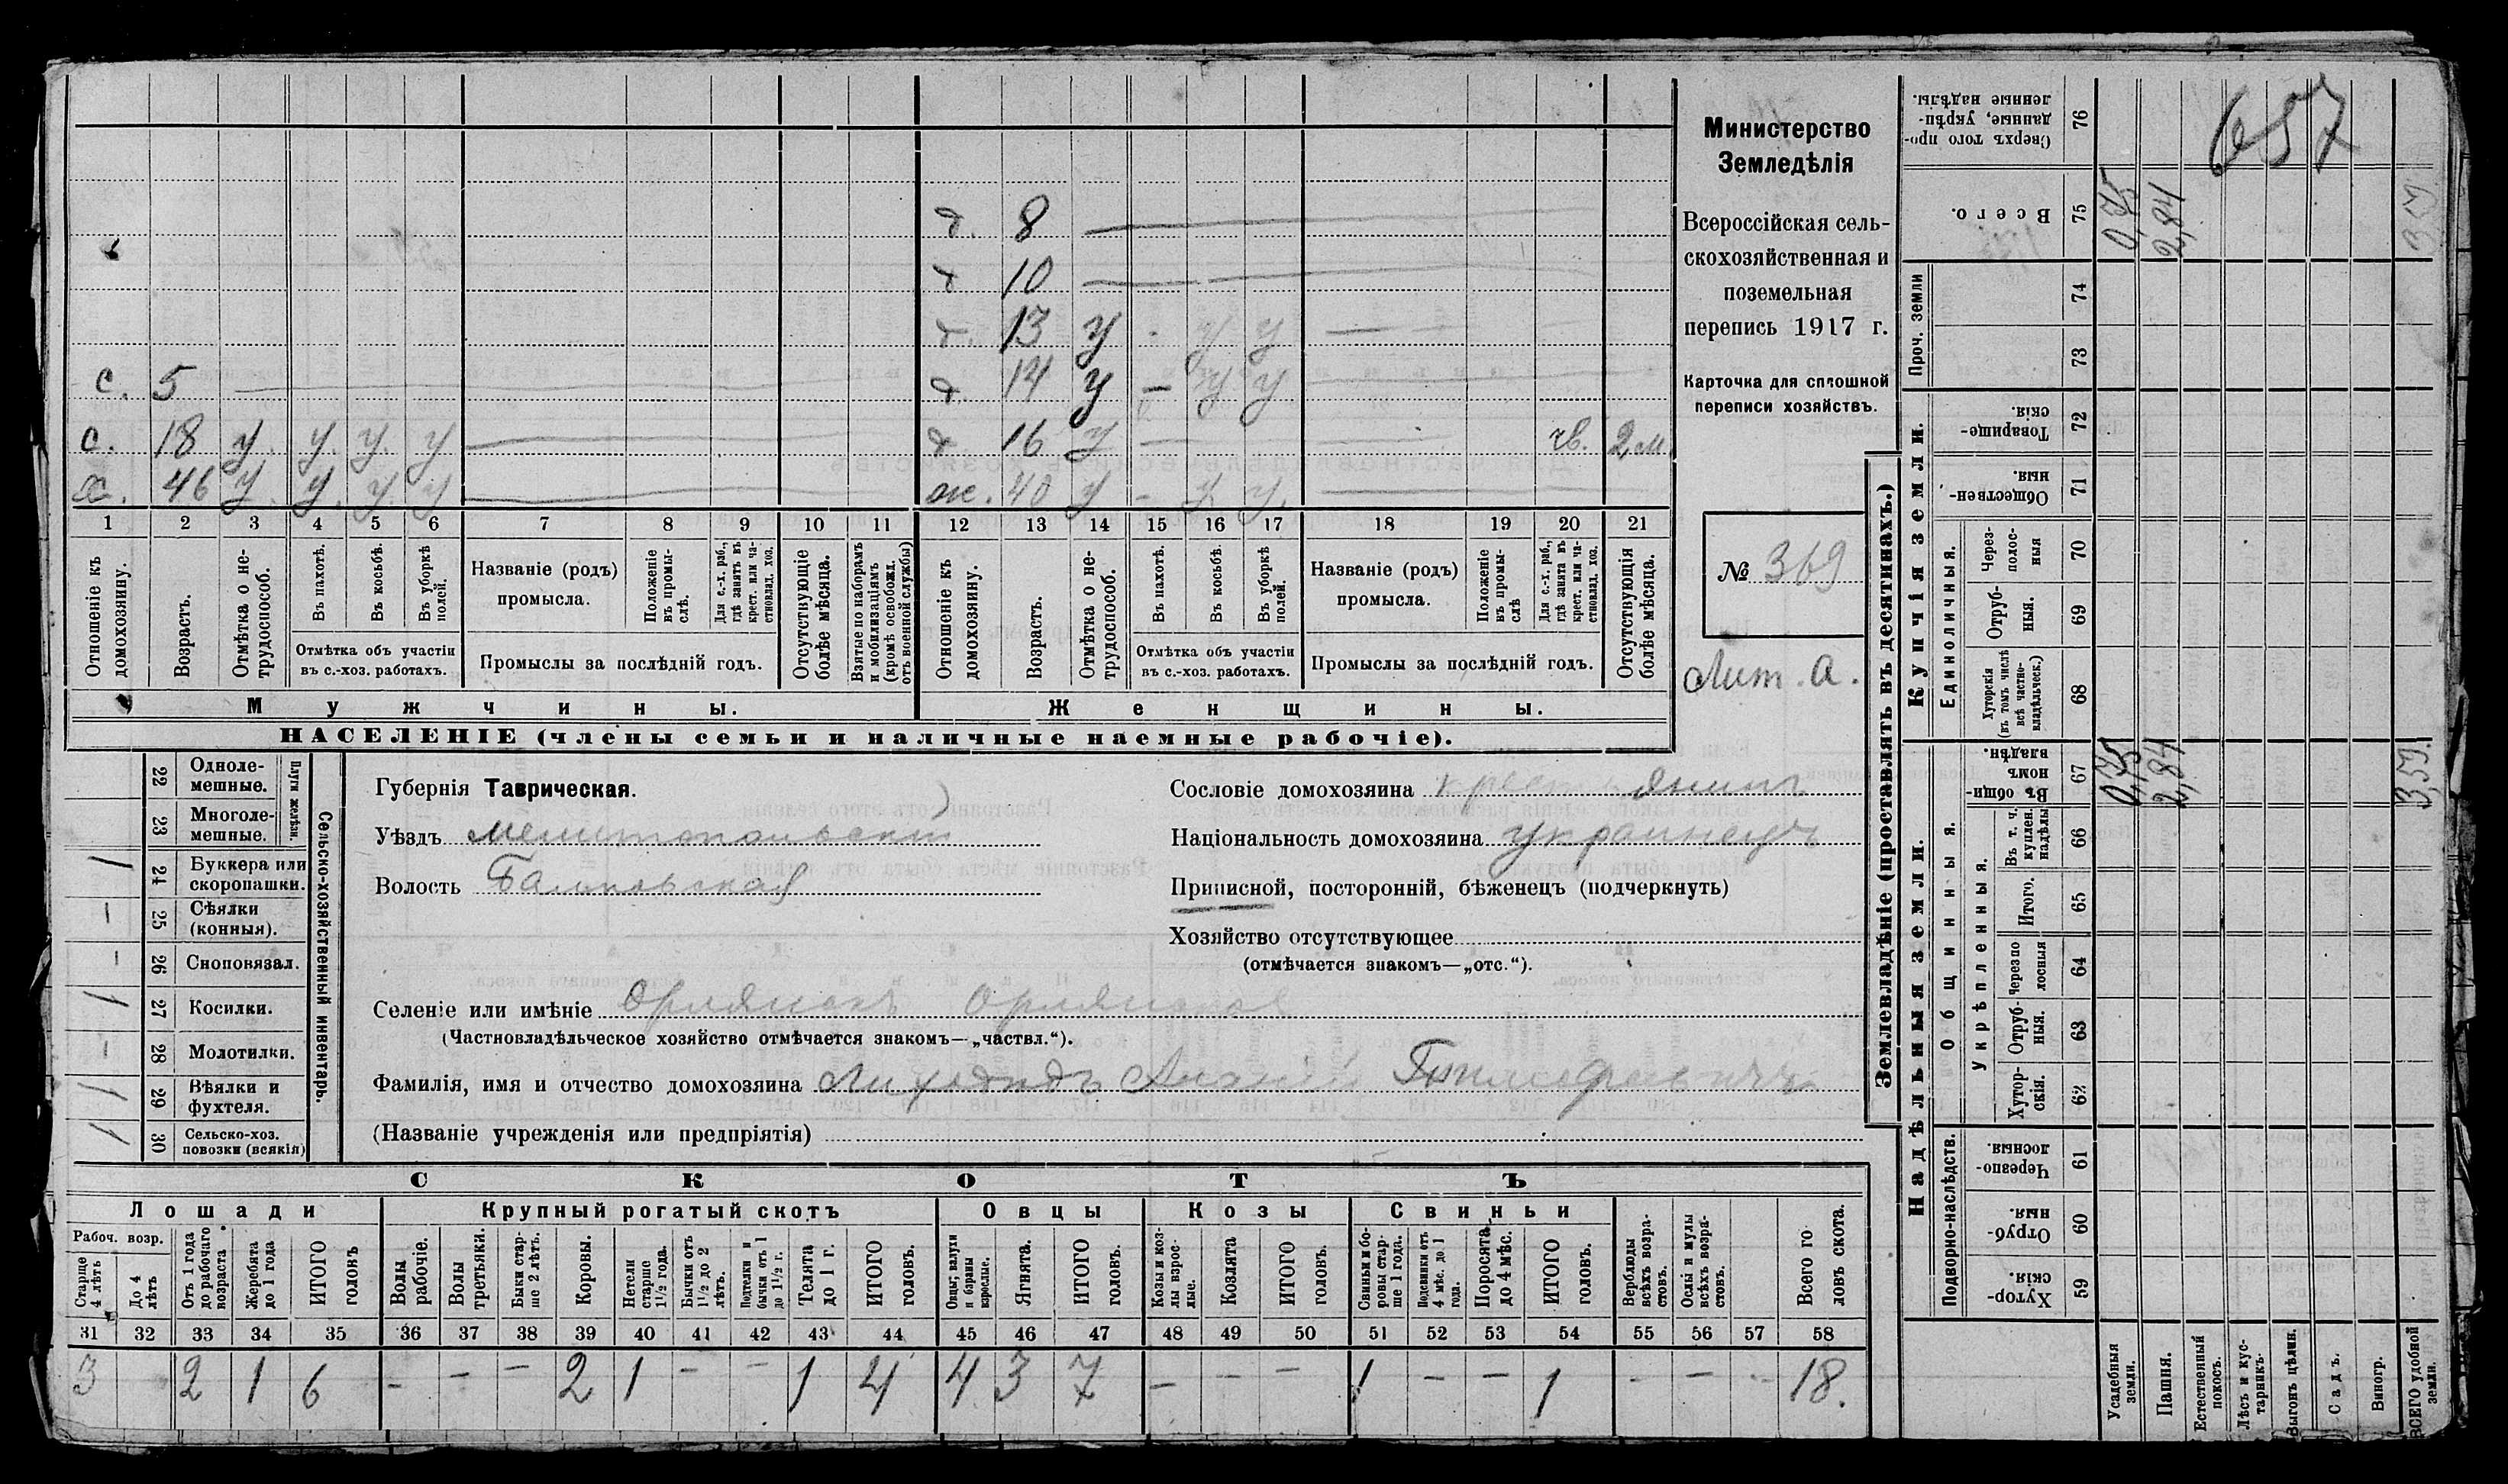 д. 8
д 10
д. 13 у - у у —
с. 5 —
д. 14 у — у у —
с. 18 у. у. у. у —
д 16 у — чв. 2 м.
х. 46 у. у. у. у —
ж. 40 у - у у. —
1 2 3 4 5 6 7 8 9 10 11 12 13 14 15 16 17 18 19 20 21
Отношеніе къ домохозяину.
Возрастъ.
Отмѣтка о не-
трудоспособ.
Въ пахотѣ.
Въ косьбѣ.
Въ уборкѣ полей.
Отмѣтка объ участіи
въ с.-хоз. работахъ.
Названіе (родъ)
промысла.
Положеніе въ промы-
слѣ.
Для с.-х. раб., гдѣ занятъ въ крест. или ча-
стновлад. хоз.
Промыслы за послѣдній годъ.
Отсутствующіе болѣе мѣсяца.
Взятые по наборамъ и мобилизаціямъ (кромѣ освобожд. отъ военной службы)
Отношеніе къ домохозяину.
Возрастъ.
Отмѣтка о не-
трудоспособ.
Въ пахотѣ.
Въ косьбѣ.
Въ уборкѣ полей.
Отмѣтка объ участіи
въ с.-хоз. работахъ.
Названіе (родъ)
промысла.
Положеніе въ промы-
слѣ
Для с.-х. раб., гдѣ занята въ крест. или ча-
стновлад. хоз.
Промыслы за послѣдній годъ.
Отсутствующія болѣе мѣсяца.
Мужчины.
Женщины.
НАСЕЛЕНІЕ (члены семьи и наличные наемные рабочіе).
Министерство
Земледѣлія
Всероссійская сель-
скохозяйственная и
поземельная
перепись 1917 г.
Карточка для сплошной
переписи хозяйствъ.
№ 369
Лит. а.
22 Одноле-
мешные.
23 Многоле-
мешные.
Плуги желѣзн.
1 24 Буккера или
скоропашки.
— 25 Сѣялки
(конныя).
— 26 Сноповязал.
1 27 Косилки.
— 28 Молотилки.
1 29 Вѣялки и
фухтеля.
1 30 Сельско-хоз.
повозки (всякія)
Сельско-хозяйственный инвентарь.
Губернія Таврическая.
Уѣздъ Мелитопольскій
Волость
Сословіе домохозяина крестьянинъ
Національность домохозяина украинецъ
Приписной, посторонній, бѣженецъ (подчеркнуть)
Хозяйство отсутствующее
(отмѣчается знакомъ—„отс.“).
Селеніе или имѣніе Орлянскъ Орлянское
(Частновладѣльческое хозяйство отмѣчается знакомъ—„частвл.“).
Фамилія, имя и отчество домохозяина
(Названіе учрежденія или предпріятія)
СКОТЪ
Лошади
Крупный рогатый скотъ
Овцы
Козы
Свиньи
Рабоч. возр.
Старше 4 лѣтъ
До 4 лѣтъ
Отъ 1 года до рабочаго возраста
Жеребята до 1 года
ИТОГО головъ
Волы рабочіе.
Волы третьяки.
Быки стар-
ше 2 лѣтъ.
Коровы.
Нетели старше 1½ года.
Бычки отъ 1½ до 2 лѣтъ.
Подтелки и бычки отъ 1 до 1½ г.
Телята до 1 г.
ИТОГО головъ.
Овцы, валухи и бараны взрослые.
Ягнята.
ИТОГО головъ.
Козы и коз-
лы взрос-
лые.
Козлята
ИТОГО головъ.
Свиньи и бо-
ровы стар-
ше 1 года.
Подсвинки отъ 4 мѣс. до 1 года.
Поросята до 4 мѣс.
ИТОГО головъ.
Верблюды всѣхъ возра-
стовъ.
Ослы и мулы всѣхъ возра-
стовъ.
Всего го-
ловъ скота.
31 32 33 34 35 36 37 38 39 40 41 42 43 44 45 46 47 48 49 50 51 52 53 54 55 56 57 58
3 2 1 6 - — — 2 1 — — 1 4 4 3 7 — — — 1 — — 1 - — - 18.
Землевладѣніе (проставлять въ десятинахъ.)
Надѣльныя земли.
Купчія земли.
Проч. земли
Общинныя.
Укрѣпленныя.
Единоличныя.
Подворно-наслѣдств.
Сверхъ того про-
данные, укрѣп-
ленные надѣлы.
76
657
Всего.
75
0,75
2,84
3,59
74
73
Товарище-
скія.
72
Обществен-
ныя
71
Через-
полос-
ныя
70
Отруб-
ныя.
69
Хуторскія
(въ томъ числѣ
всѣ частно-
владѣльческ.)
68
Въ общин-
номъ
владѣн.
67
0,75
2,84
3,59.
Въ т. ч.
куплен.
надѣлы
66
Итого.
65
Черезпо
лосныя
64
Отруб-
ныя.
63
Хутор-
скія.
62
Черезпо-
лосныя
61
Отруб-
ныя.
60
Хутор-
скія.
59
Усадебныя земли.
Пашня.
Естественный покосъ.
Лѣсъ и кус-
тарникъ.
Выгонъ цѣлин.
Садъ.
Виногр.
ВСЕГО удобной земли.